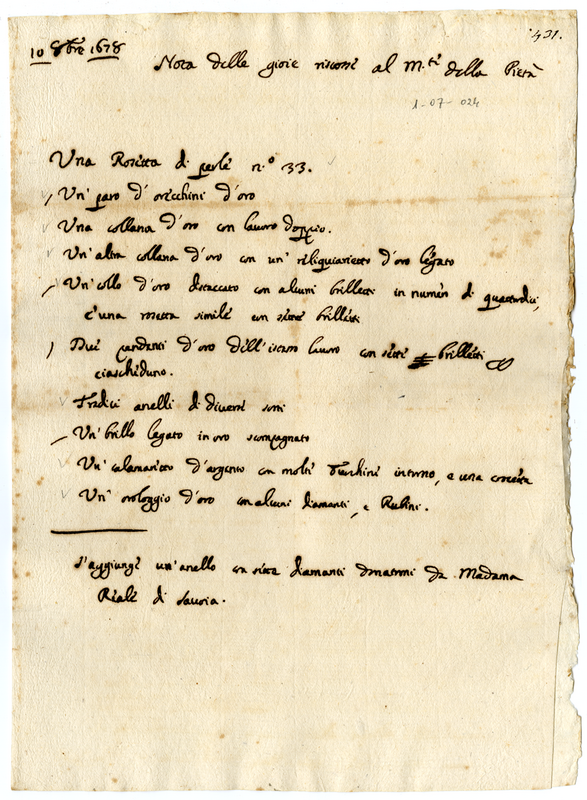 10 8bre 1678
431.
Nota delle gioie riscosse al M.te della Pietà
1-07-024
Una Rosetta di perle n.o 33.
Un' paro d' orecchini d'oro
Una collana d'oro con lavoro doppio.
Un'altra collana d'oro con un' reliquiarietto d'oro legato
Un'collo d'oro distaccato con alcuni brilletti in numero di quattordici,
e'una rosetta simile con sette brilletti
Due pendenti d'oro dell'istesso lavoro con sette brilletti
ciascheduno.
Tredici anelli di diverse sorti
Un'brillo legato in oro scompagnato
Un'calamarietto d'argento con molte Turchine intorno, e una
Un' orologgio d'oro con alcuni diamanti, e Rubini.
S'aggiunge un'anello con sette diamanti donatomi da Madama
Reale di Savoia.